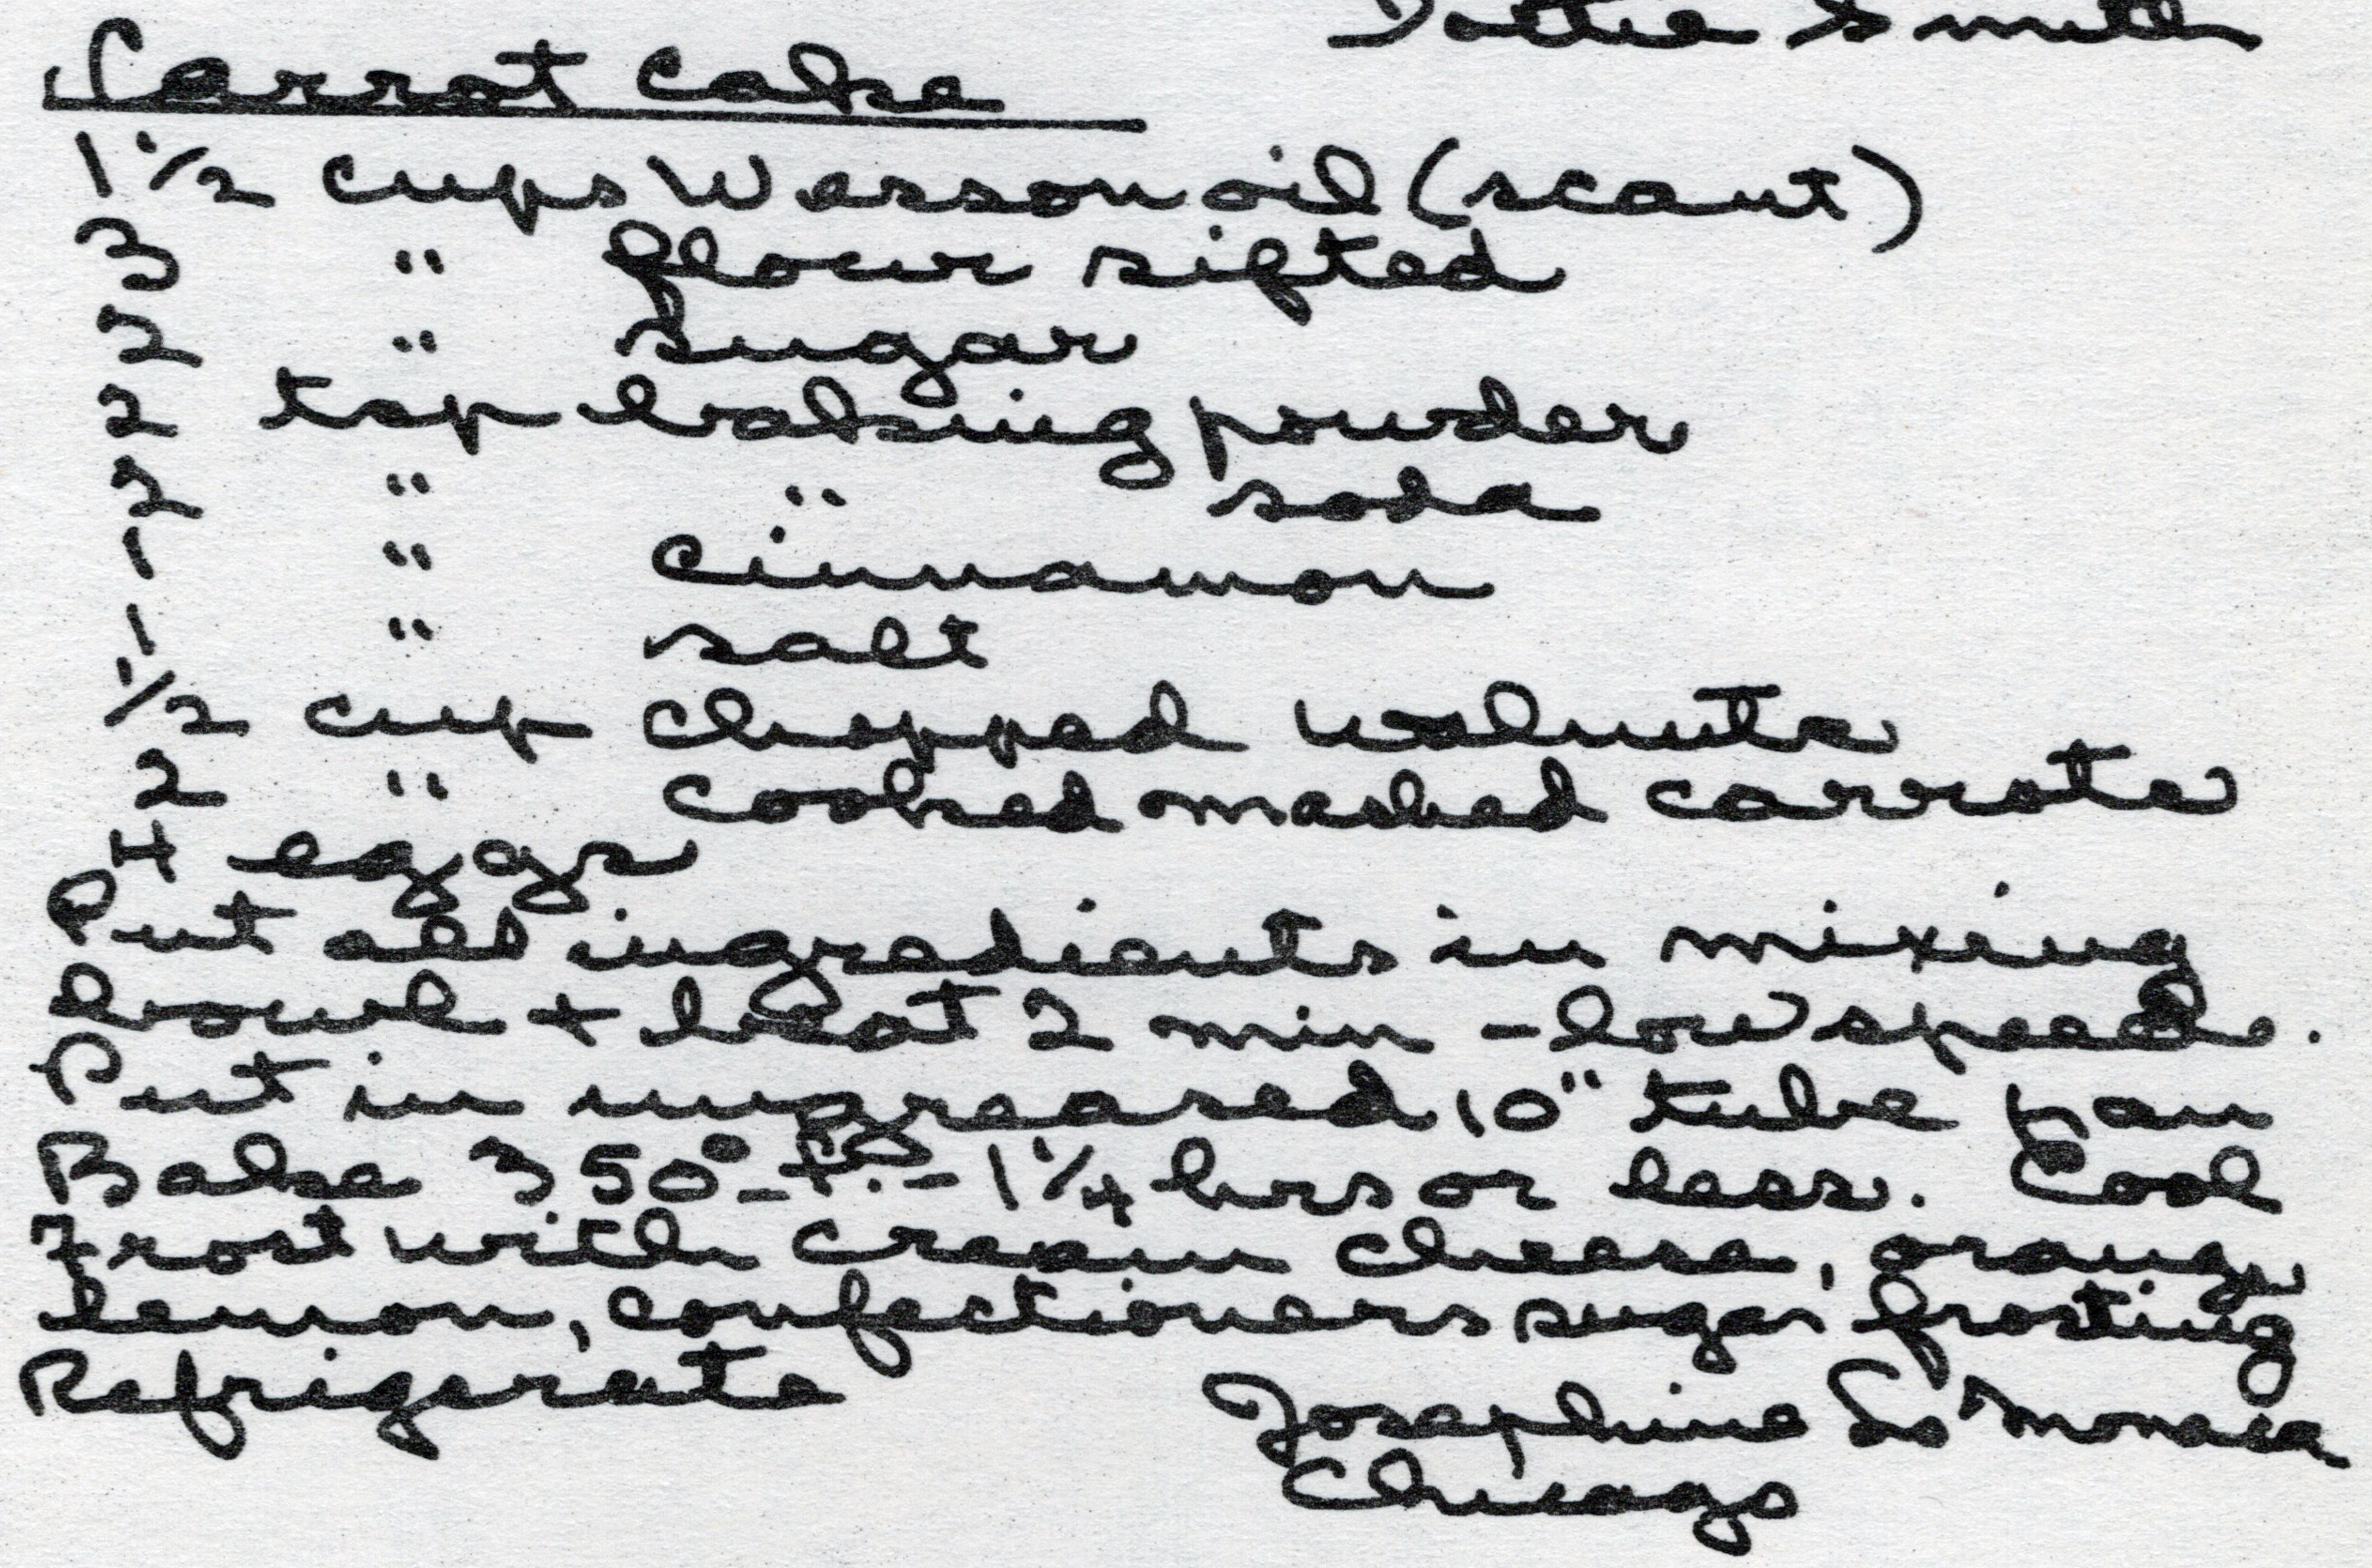 Dottie Smith
Carrot Cake
1 1/2 cups Wesson oil (scant)
3 " flour sifted
2 " sugar
2 tsp baking powder
2 " " soda
1 " cinnamon
1 " salt
1/2 cup chopped walnuts
2 " cooked mashed carrots
4 eggs
Put all ingredients in mixing
bowl + beat 2 min - low speed.
Put in ungreased 10" tube pan
Bake 350° - - 1 1/4 hrs or less. Cool
Frost with cream cheese, orange
lemon, confectioners sugar frosting
Refrigerate
Josephine Lo Monaca
Chicago